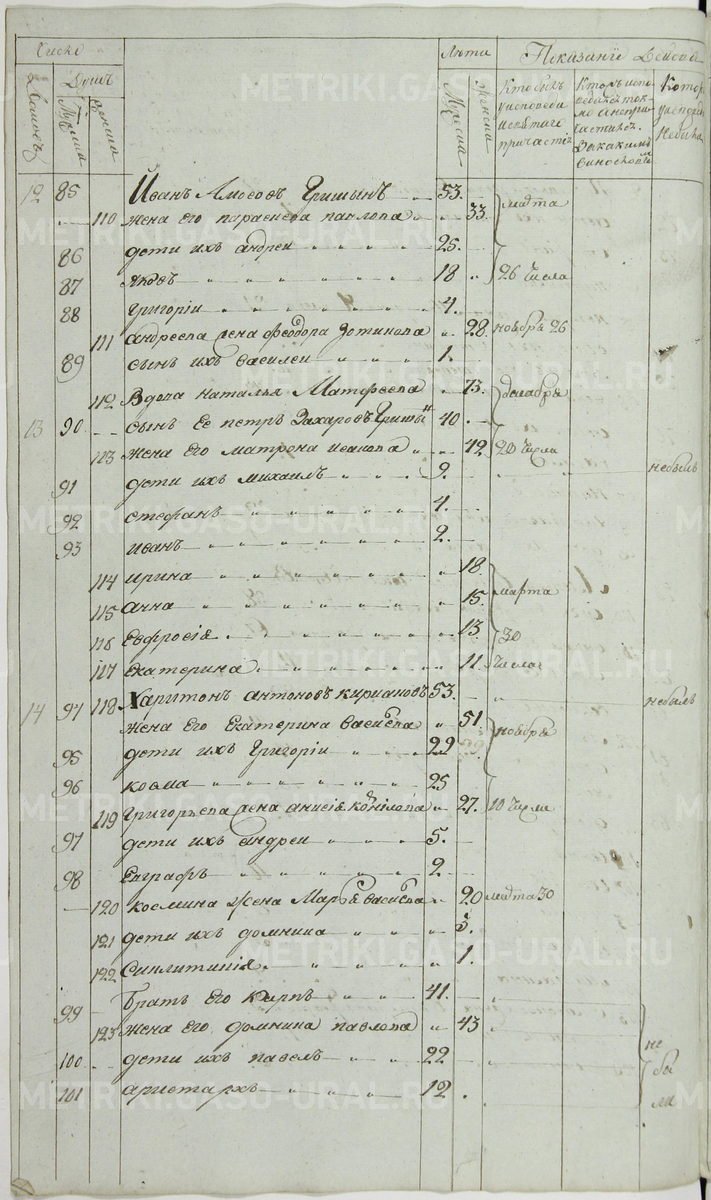 Число Лѣта Показаніе Дейова
Дворовъ Душъ Мужеска Женска Мужска Женска Кто былъ у исповеди и святаго причастія Кто исповедался токмо а не причастился За какимъ виносло Котор у исповед Небыли
12 85 Иванъ Амосовъ Гришынъ 53. марта
110 жена его параскева павлова 33.
86 дети ихъ андреи 25.
87 яковъ 18 26 числа
88 григоріи 4.
111 андреева жена феодора Зотикова 28. ноября 26
89 сынъ ихъ василеи 1.
112 Вдова наталья Матфеева 73. декабря
13 90 сынъ Ее петръ Захаровъ Гришы 40
113 жена его матрона иванова 42 20 числа
91 дети ихъ михаилъ 9. небылъ
92 стефанъ 4.
93 иванъ 2.
114 ирина 18
115 анна 15. марта
116 Евфросія 13. 30
117 Екатерина 11. числа
14 94 118 Харитонъ антоновъ кириановъ 53. небылъ
жена Его Екатерина васильева 51. ноября
95 дети ихъ Григоріи 29
96 косма 25
119 Григорьева жена анисія 27. 10 числа
97 дети ихъ андреи 5.
98 Евграфъ 2
120 космина жена Марья васильева 20 марта 30
121 дети ихъ домника 5.
122 Синлитикія 1.
99 братъ Его карпъ 41.
123 жена Его домника павлова 43 не
100 дети ихъ павелъ 22 бы
101 аристархъ 12 ли
METRIKI.GASO-URAL.RU